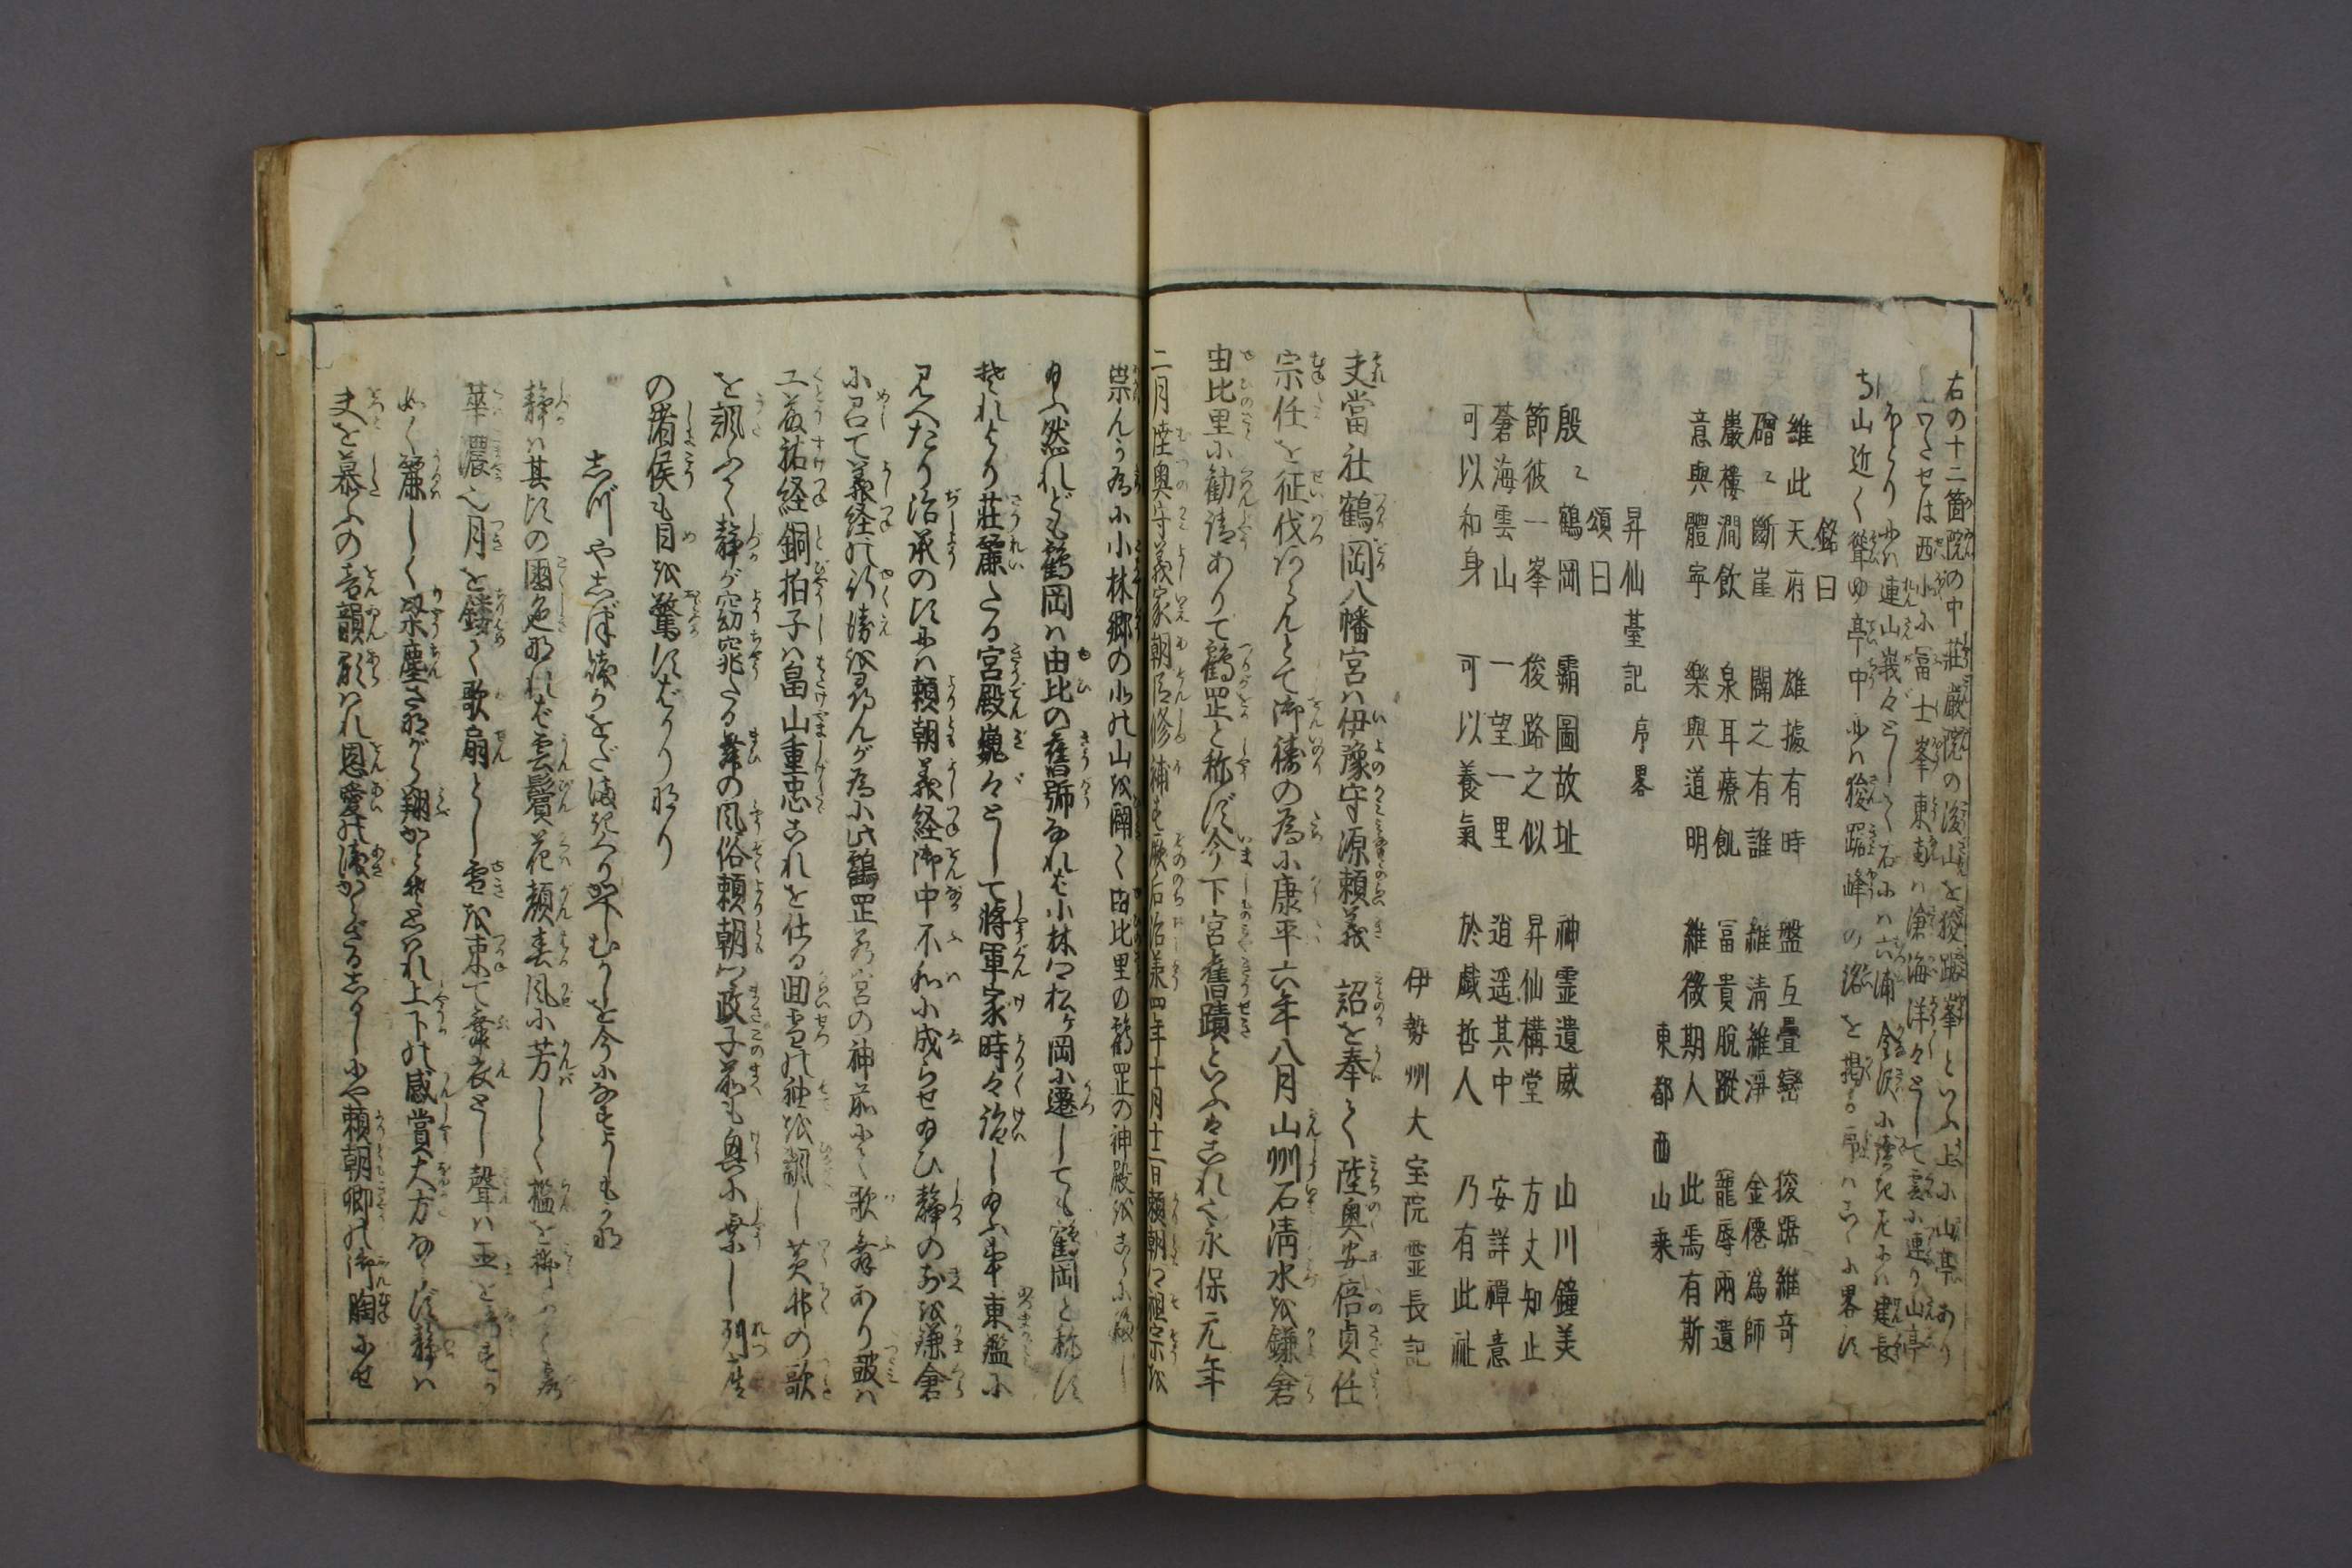 右の十二箇院の中荘厳院の後山を猿踞峯といふ上に山亭あり
わたせは西に冨士峯東南は滄海洋々として雲に連り山亭
ほとりには連山峩々として右には六浦金沢に続き左には建長
寺山近く聳ゆ亭中には猿踞峰の銘を掲る序はこゝに畧す
銘曰
維此天府　雄據有時　盤互疊巒　猿踞維奇
磳〻斷崖　闢之有誰　維淸維淨　金僊爲師
巖樓澗飲　泉耳療飢　冨貴脫蹝　寵辱兩遺
意與體寧　樂與道明　維微期人　此焉有斯
東都西山乗
昇仙臺記　序畧
頌曰
殷〻鶴岡　霸圖故址　神霊遺威　山川鐘美
節彼一峯　狻路之似　昇仙構堂　方丈知止
蒼海雲山　一望一里　逍遥其中　安詳禪意
可以和身　可以養氣　於戯哲人　乃有此祉
伊勢州大宝院霊長記
夫當社鶴岡八幡宮は伊豫守源頼義　詔を奉て陸奥安倍貞任
宗任を征伐あらんとて御祷の為に康平六年八月山州石清水を鎌倉
由比里に勧請ありて鶴岡と称ず今下宮舊蹟といふはこれ也永保元年
二月陸奥守義家朝臣修補を厥后治承四年十月十二日頼朝公祖宗を
祟んか為に小林郷の北の山を闢く由比里の鶴岡の神殿をこゝに移し
給ふ然れども鶴岡は由比の舊号なれど小林松ヶ岡に遷しても鶴岡と称す
それより荘麗たる宮殿巍々として将軍家時々詣し給ふ事東鑑に
見へたり治承の頃には頼朝義経御中不和に成らせ給ひ静の前を鎌倉
に召て義経の行衛を尋んが為に此鶴岡若宮の神前にて歌舞あり鼓は
工藤祐経銅拍子は畠山重忠これを仕る回雪の袖を飜し黄竹の歌
を諷ふて静が窈窕たる舞の風俗頼朝公政子前も興に乗し列座
の諸侯も目を驚すばかりなり
しづやしづしづのをだまきくりかへしむかしを今になすよしもかな
静は其頃の國色なれど雲鬢花顔春風に芳しく檻を拂の
華濃也月を鏤て歌扇とし雪を束て舞衣とし聲は玉を
如く麗しく梁塵さながら翔かとおもはれ上下の感賞大方ならず静は
夫を慕ふの音韻形はれ恩愛の浅からざるしるしにや頼朝卿の御胸にせ